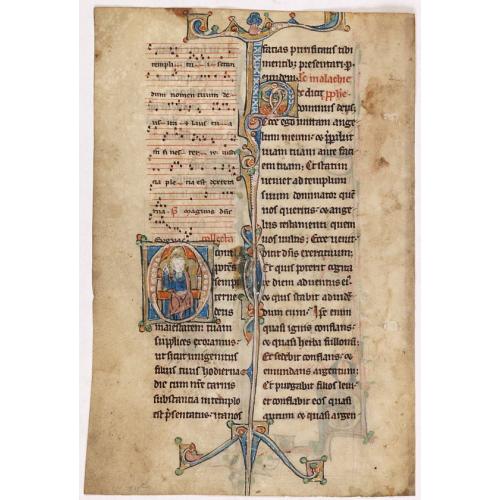 templi tu i secun
dum nomen tuum de
us ita & laus tu a
in fi nes ter re iusti
cia ple na est dextera
tua. Magnus dns
Collecta
Omni
potens
sempi
terne
deus
maiestatem tuam
supplices exoramus.
ut sicut unigenitus
filius tuus hodierna
die cum nre carnis
substancia in templo
est psentatus. ita nos
facias purificatis tibi
mentibz presentari. p
eundem. malachie
ec dicit pphe
dominus deus.
Ecce ego mittam ange
lum meum. & pparabit
uiam tuam ante faci
em tuam; Et statim
ueniet ad templum
suum dominator que
uos queritis. & ange
lus testamenti quem
uos uultis; Ecce uenit
dicit dns exercituum;
Et quis poterit cogita
re diem aduentus ei
& quis stabit ad uiden
dum eum. Ipse enim
quasi ignis conflans.
& quasi herba fullonu
Et sedebit conflans. &
emundans argentum;
Et purgabit filios leui
et conflabit eos quasi
aurum & quasi argen